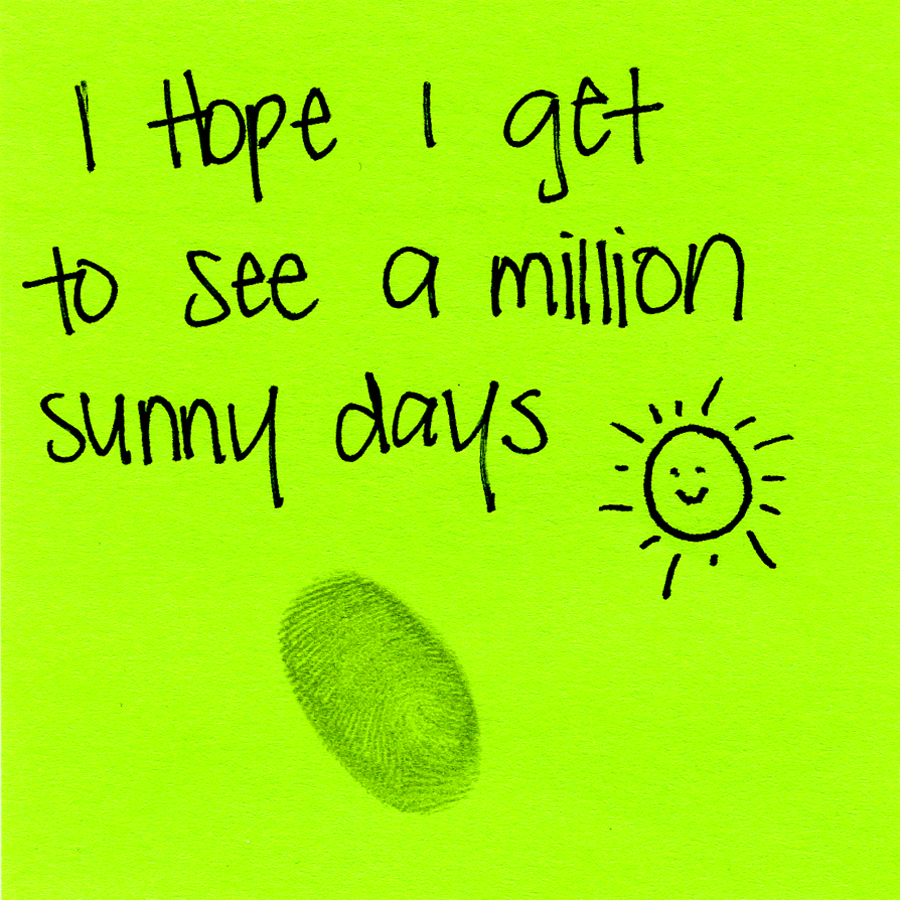 I Hope I get
to see a million
sunny days